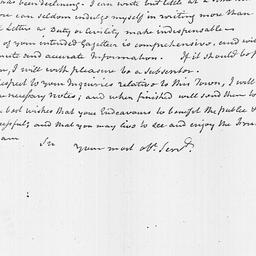 been declining. I can write but little at a time
can seldom indulge myself in writing more than
Letters as Duty or Civility make indispensable
of your intended Gazetteer is comprehensive, and will
and accurate Information. If it should be
I will with pleasure be a Subscriber.
respect to your Inquiries relative to this Town, I will
necessary notes; and when finished will send them to
best wishes that your Endeavours to benefit the public
and that you may live to see and enjoy the
am
Sir your most obt. Servt.